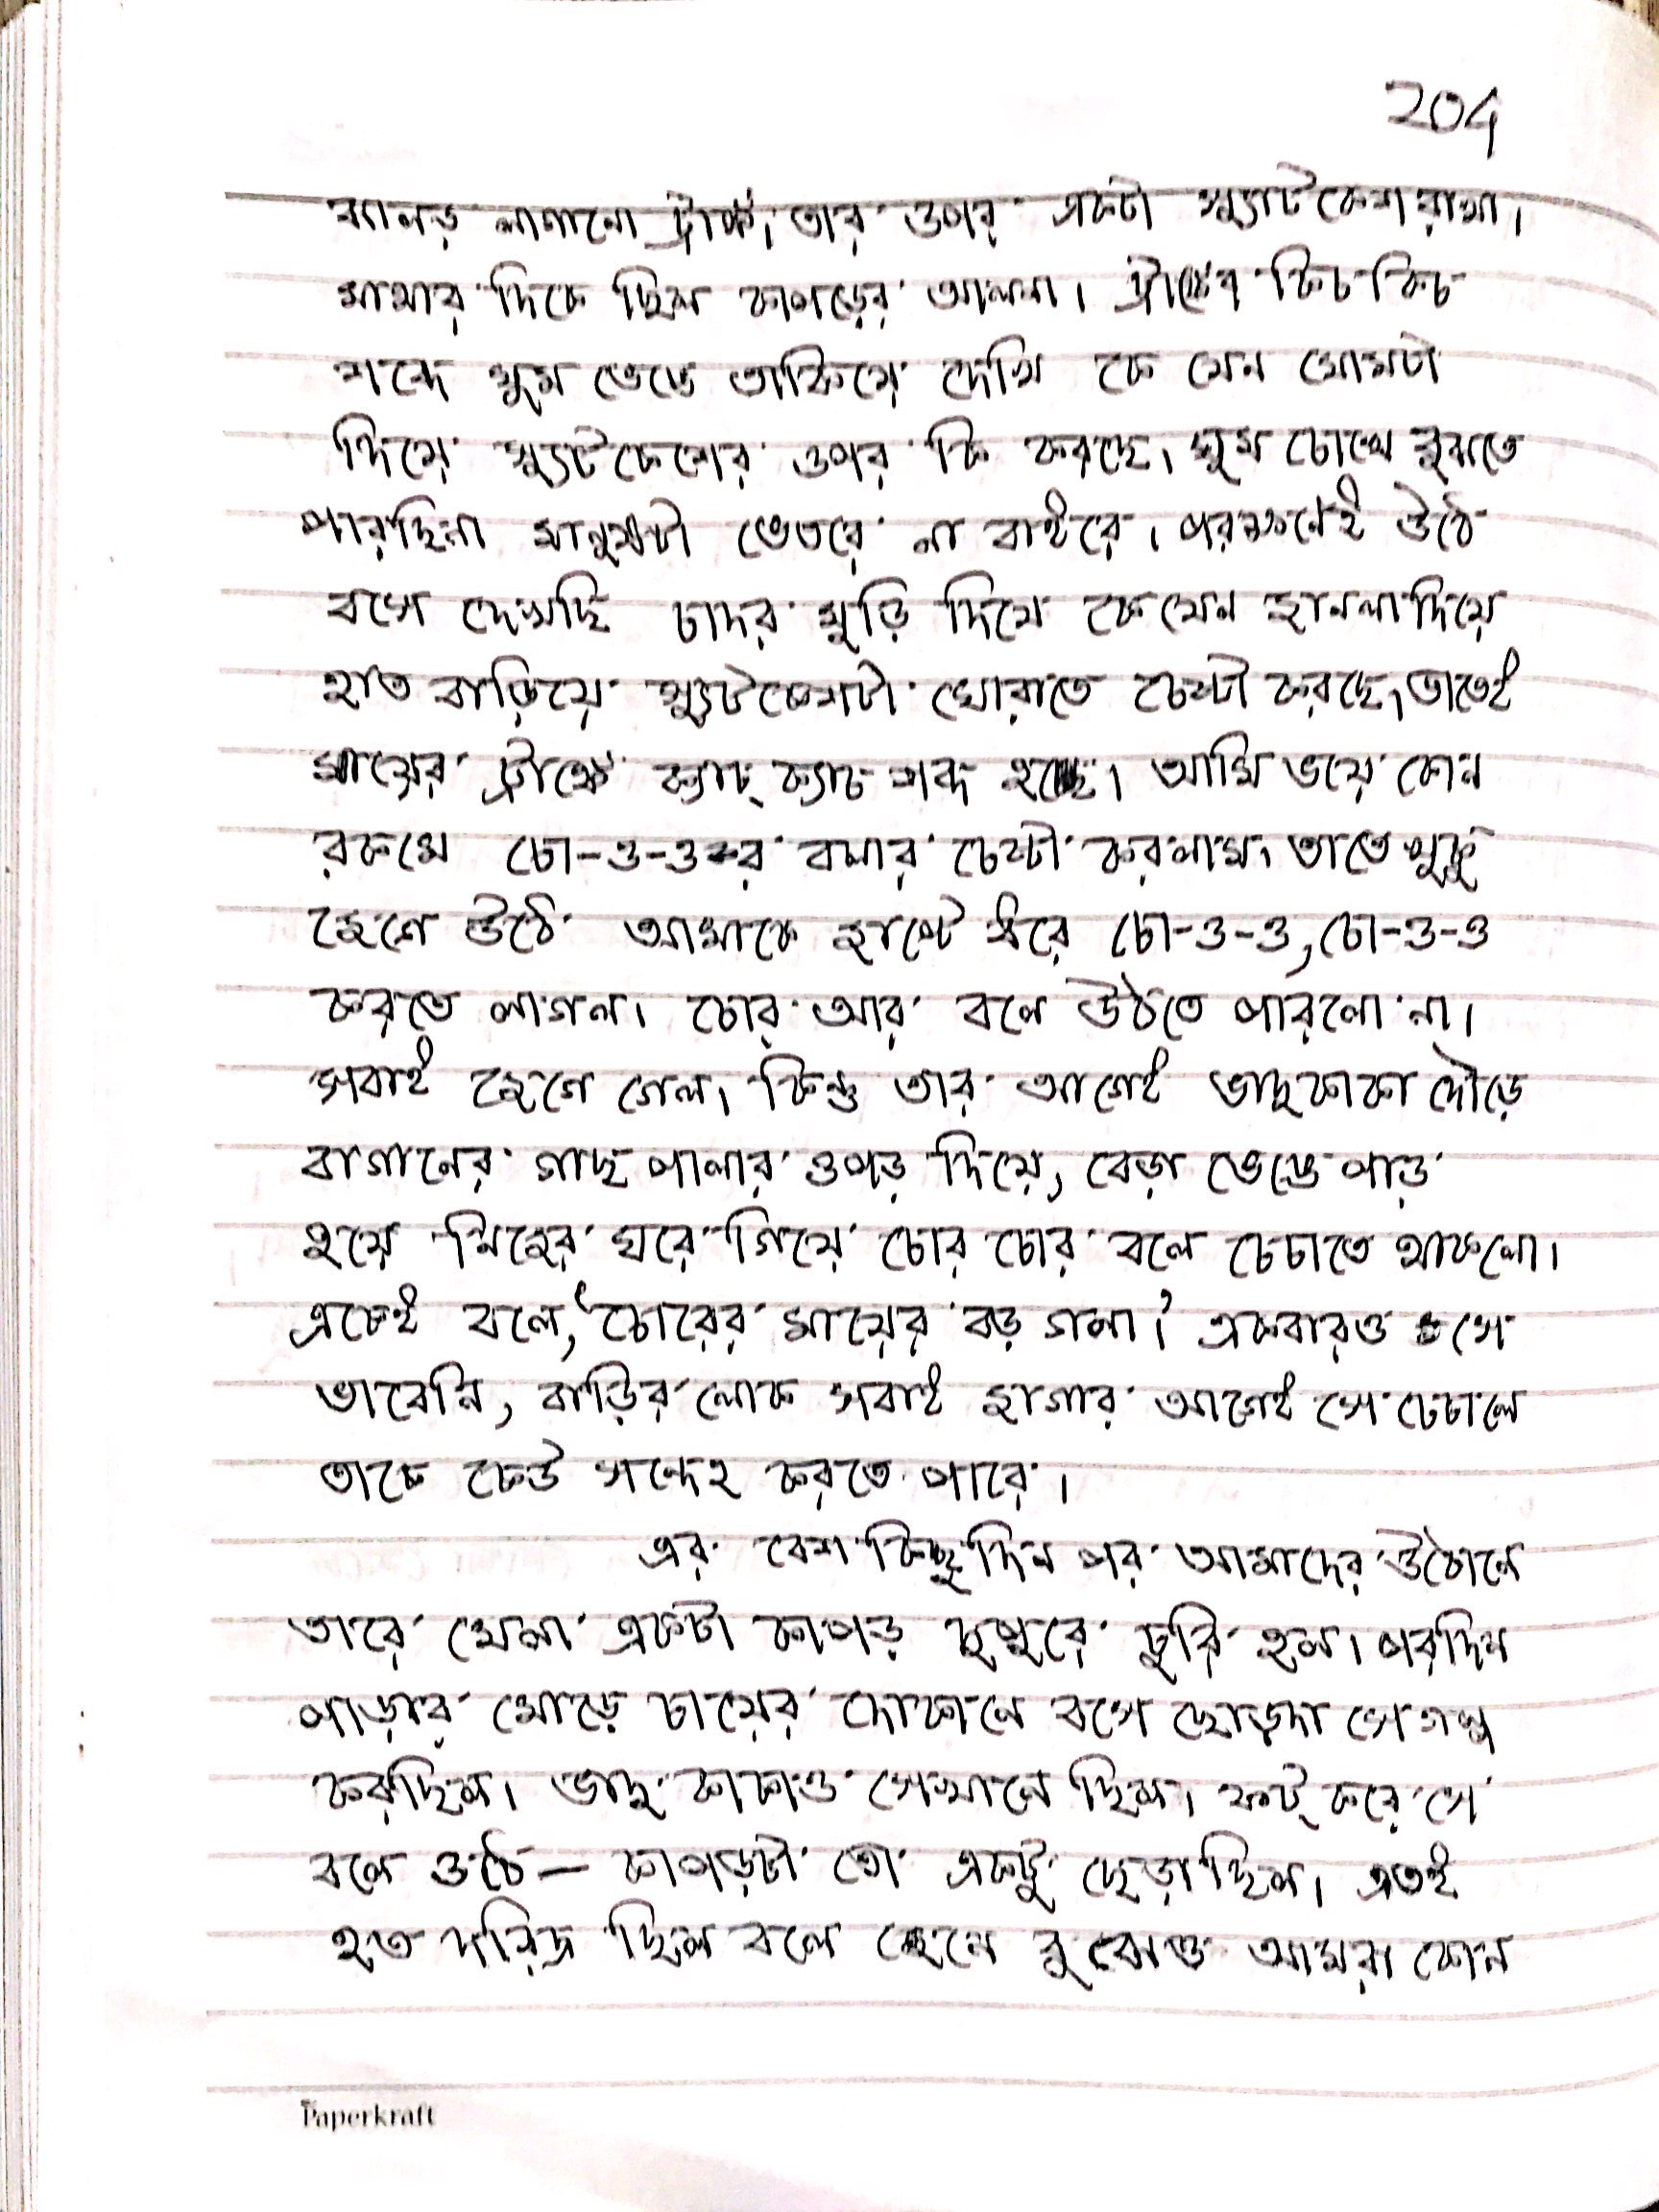 204
কাপড় লাগানো ট্রাঙ্ক, তার ওপর একটা স্যুটকেশ রাখা।
মাথার দিকে ছিল কাপড়ের আলনা। ট্রাঙ্কের কিচ কিচ
শব্দে ঘুম ভেঙে তাকিয়ে দেখি কে যেন ঘোমটা
দিয়ে স্যুটকেশের ওপর কি করছে। ঘুম চোখে বুঝতে
পারছিনা মানুষটা ভেতরে না বাইরে। পরক্ষণেই উঠে
বসে দেখছি চাদর মুড়ি দিয়ে কে যেন জানলা দিয়ে
হাত বাড়িয়ে স্যুটকেশটা ঘোরাতে চেষ্টা করছে, তাতেই
মায়ের ট্রাঙ্কে ক্যাচ্ ক্যাচ শব্দ হচ্ছে। আমি ভয়ে কোন
রকমে চো-ও-ও-র বলার চেষ্টা করলাম। তাতে খুকু
জেগে উঠে আমাকে জাপ্টে ধরে চো-ও-ও, চো-ও-ও
করতে লাগল। চোর আর বলে উঠতে পারলো না।
সবাই জেগে গেল। কিন্তু তার আগেই ভাদু কাকা দৌড়ে
বাগানের গাছ পালার ওপড় দিয়ে, বেড়া ভেঙে পাড়
হয়ে নিজের ঘরে গিয়ে চোর চোর বলে চেচাতে থাকলো।
একেই বলে, ‘চোরের মায়ের বড় গলা।’ একবারও সে
ভাবেনি, বাড়ির লোক সবাই জাগার আগেই সে চেচালে
তাকে কেউ সন্দেহ করতে পারে।
এর বেশ কিছু দিন পর আমাদের উঠোনে
তারে মেলা একটা কাপড় দুপুরে চুরি হল। পরদিন
পাড়ার মোড়ে চায়ের দোকানে বসে ছোড়দা সে গল্প
করছিল। ভাদু কাকাও সেখানে ছিল। ফট্ করে সে
বলে ওঠে — কাপড়টা তো একটু ছেড়া ছিল। এতই
হত দরিদ্র ছিল বলে জেনে বুঝেও আমরা কোন
Paperkraft